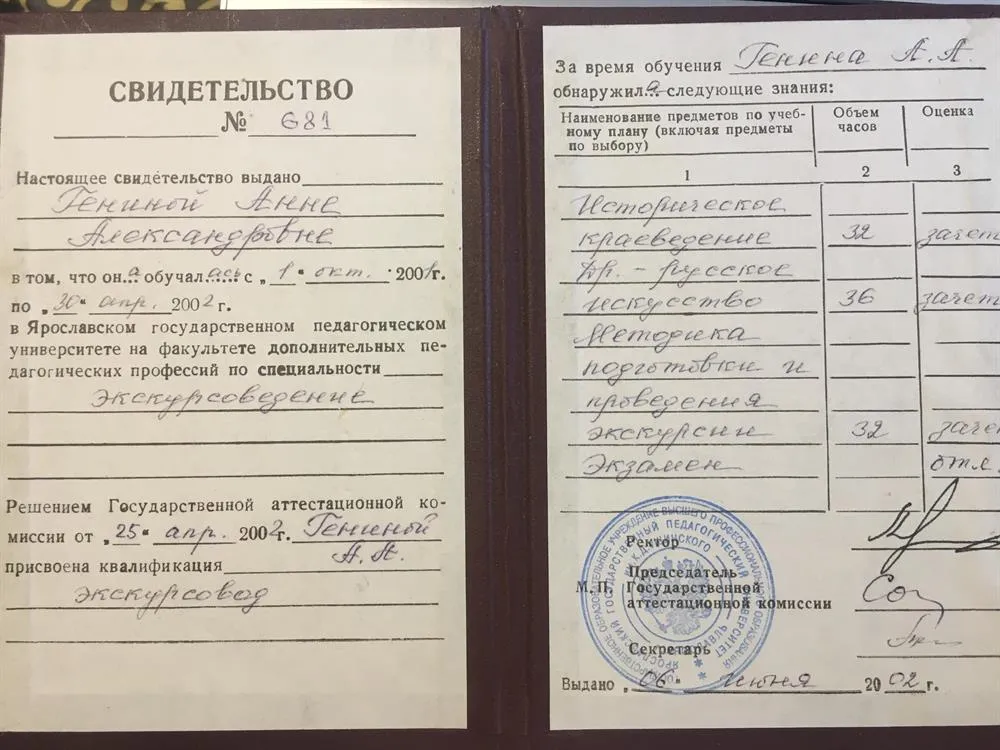 СВИДЕТЕЛЬСТВО
№ 681
Настоящее свидетельство выдано
Гениной Анне
Александровне
в том, что он.а обучал.ась с „1" окт. 2001г.
по „30" апр. 2002г.
в Ярославском государственном педагогическом
университете на факультете дополнительных пе-
дагогических профессий по специальности
экскурсоведение
Решением Государственной аттестационной ко-
миссии от „25" апр. 2002г. Гениной
А.А.
присвоена квалификация
экскурсовод
За время обучения Генина А.А.
обнаружил.а следующие знания:
Наименование предметов по учеб- Объем Оценка
ному плану (включая предметы часов
по выбору)
1 2 3
Историческое
краеведение 32 зачет
Др.-русское
искусство 36 зачет
Методика
подготовки и
проведения
экскурсии 32 заче
Экзамен отл.
Ректор
Председатель
М.П. Государственной
аттестационной комиссии
Секретарь
Выдано „06" июня 2002г.